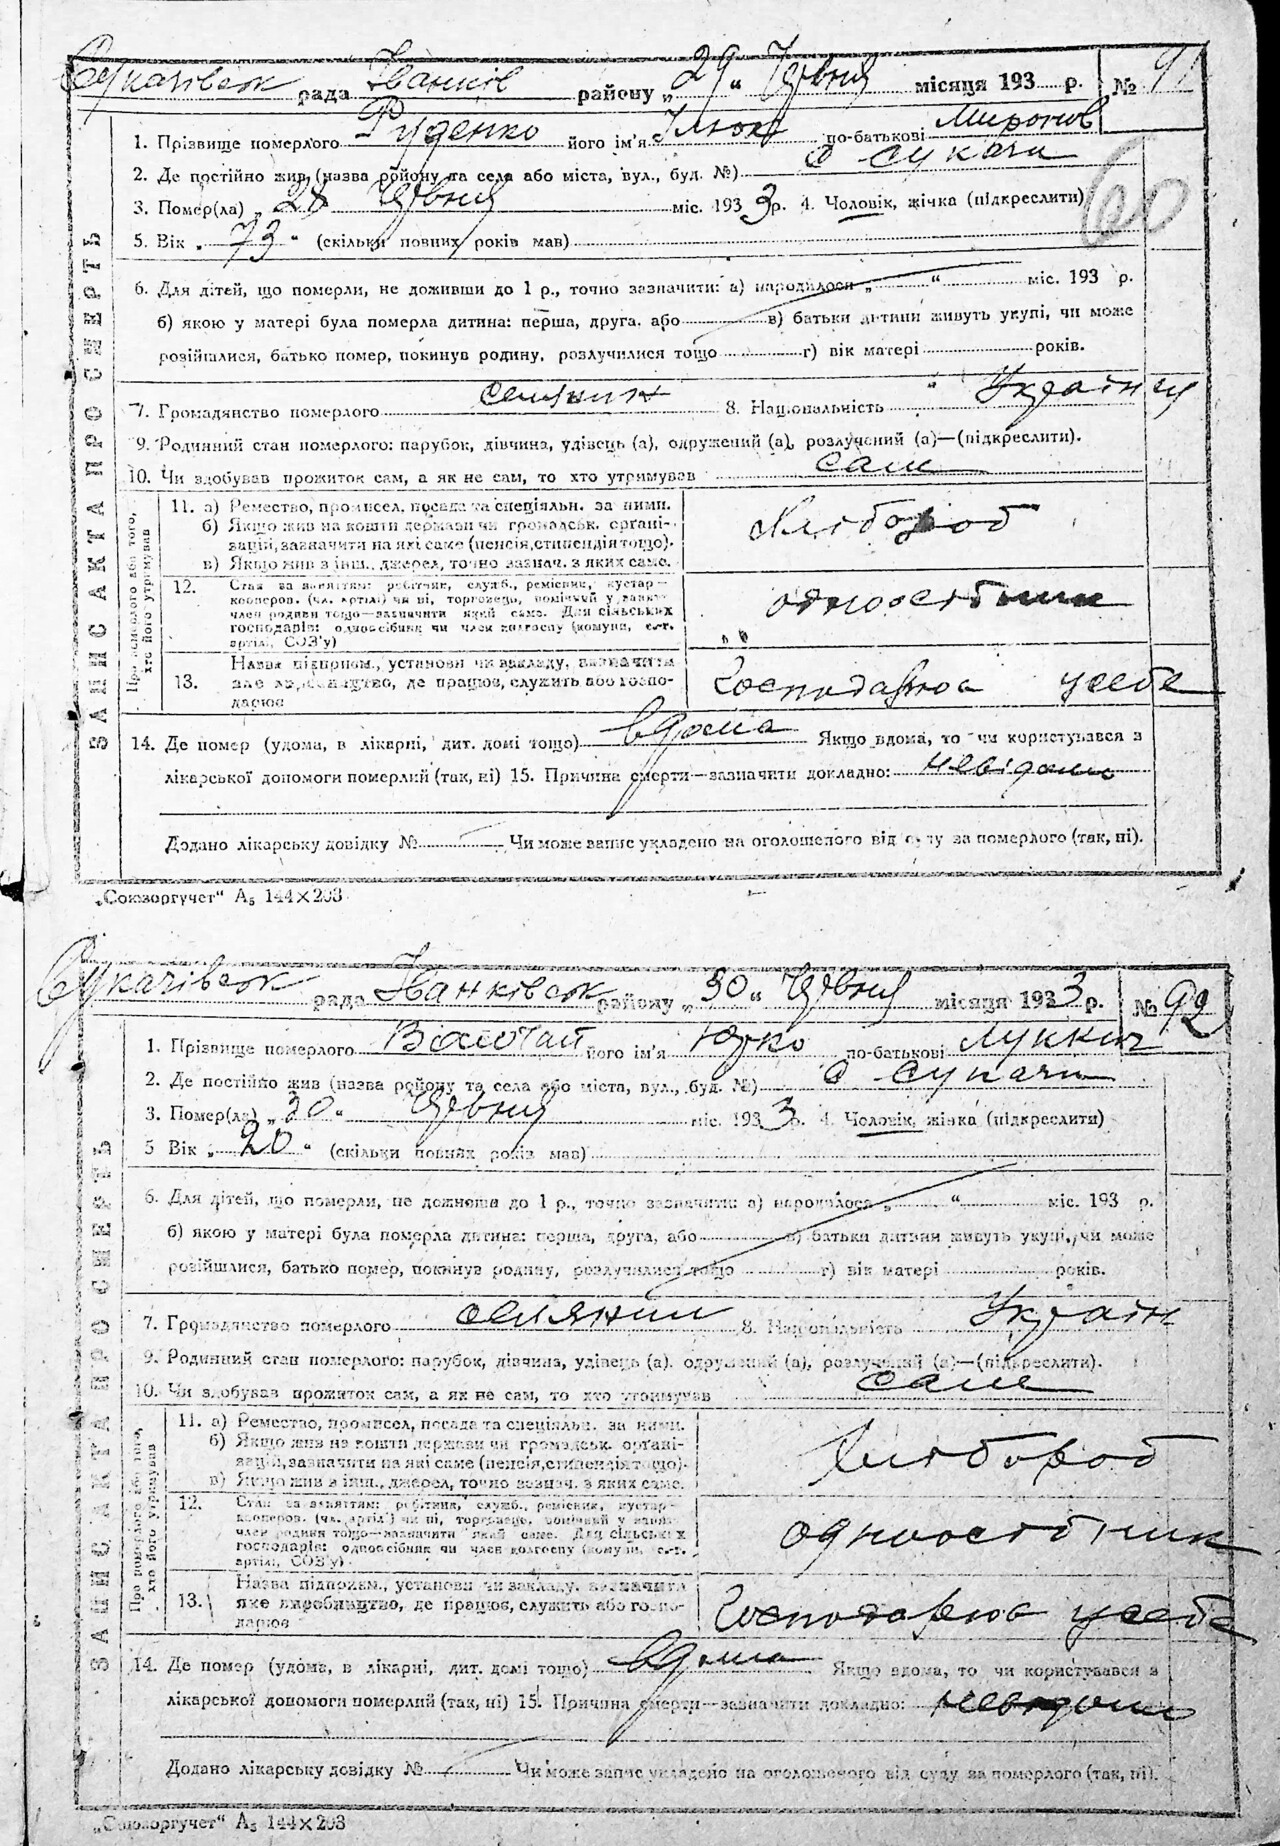 Сукачівськ рада Іванків району „29“ Червня місяця 193 р. № 91
1. Прізвище померлого Руденко його ім'я Ілюк по-батькові Миронов
2. Де постійно жив (назва району та села або міста, вул., буд. №) С Сукачи
60
3. Помер(ла) „28 Червня міс. 1933 р. 4. Чоловік, жічка (підкреслити)
5. Вік „73“ (скільки повних років мав)
6. Для дітей, що померли, не доживши до 1 р., точно зазначити: а) народилося „ “ міс. 193 р.
б) якою у матері була померла дитина: перша, друга, або в) батьки дитини живуть укупі, чи може
розійшлися, батько помер, покинув родину, розлучилися тощо г) вік матері років.
7. Громадянство померлого селянин 8. Національність Українця
9. Родинний стан померлого: парубок, дівчина, удівець (а), одружений (а), розлучений (а)—(підкреслити).
10. Чи здобував прожиток сам, а як не сам, то хто утримував сам
ЗАПИС АКТА ПРО СМЕРТЬ
Про померлого або того, хто його утримував
11. а) Ремество, промисел, посада та спеціяльн. за ними.
б) Якщо жив на кошти держави чи громадськ. органі-
зацій, зазначити на які саме (пенсія, стипендія тощо).
в) Якщо жив з інш. джерел, точно зазнач. з яких саме.
Хлібороб
12. Стан за заняттям: робітник, служб., ремісник, кустар—
кооперов. (чл. артілі) чи ні, торговець, помічний у занят.
член родини тощо—зазначити який саме. Для сільських
господарів: одноосібник чи член колгоспу (комуни, с.-г.
артілі, СОЗ'у)
одноосібник
Назва підприєм., установи чи закладу, зазначити
13. яке виробництво, де працює, служить або госпо-
дарює
Господарює у себе
14. Де помер (удома, в лікарні, дит. домі тощо) вдома Якщо вдома, то чи користувався з
лікарської допомоги померлий (так, ні) 15. Причина смерти—зазначити докладно: невідомо
Додано лікарську довідку № Чи може запис укладено на оголошеного від суду за померлого (так, ні).
„Союзоргучет“ А₅ 144×203
Сукачівськ рада Іванківськ району „30“ Червня місяця 1933 р. № 92
1. Прізвище померлого його ім'я Юрко по-батькові Лукич
2. Де постійно жив (назва району та села або міста, вул., буд. №) С Сукачи
3. Помер(ла) „30“ Червня міс. 1933 р. 4. Чоловік, жінка (підкреслити)
5 Вік „20“ (скільки повних років мав)
6. Для дітей, що померли, не дожнеши до 1 р., точно зазначити: а) народилося „ “ міс. 193 р.
б) якою у матері була померла дитина: перша, друга, або в) батьки дитини живуть укупі, чи може
розійшлися, батько помер, покинув родину, розлучилися тощо г) вік матері років.
7. Громадянство померлого селянин 8. Національність Україн
9. Родинний стан померлого: парубок, дівчина, удівець (а), одружений (а), розлучений (а)—(підкреслити).
10. Чи здобував прожиток сам, а як не сам, то хто утримував сам
ЗАПИС АКТА ПРО СМЕРТЬ
Про померлого або того, хто його утримував
11. а) Ремество, промисел, посада та спеціяльн. за ними.
б) Якщо жив на кошти держави чи громадськ. органі-
зацій, зазначити на які саме (пенсія, стипендія тощо).
в) Якщо жив в інш., джерел, точно зазнач. з яких саме.
Хлібороб
12. Стан за заняттям: робітник, служб., ремісник, кустар—
кооперов. (чл. артілі) чи ні, торговець, помічний у занят.
член родини тощо—зазначити який саме. Для сільських
господарів: одноосібник чи член колгоспу (комуни, с.-г.
артілі, СОЗ'у)
одноосібник
Назва підприєм., установи чи закладу, зазначити
13. яке виробництво, де працює, служить або госпо-
дарює
Господарює у себе
14. Де помер (удома, в лікарні, дит. домі тощо) вдома Якщо вдома, то чи користувався з
лікарської допомоги померлий (так, ні) 15. Причина смерти—зазначити докладно: невідомо
Додано лікарську довідку № Чи може запис укладено на оголошеного від суду за померлого (так, ні).
„Союзоргучет“ А₅ 144×203